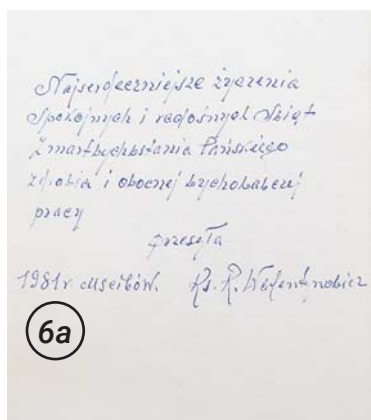 Najserdeczniejsze życzenia
Spokojnych i radosnych Świąt
Zmartwychwstania Pańskiego
zdrowia i owocnej wychowawczej
pracy
przesyła
1981r. Mscibów. Ks. R.
6a